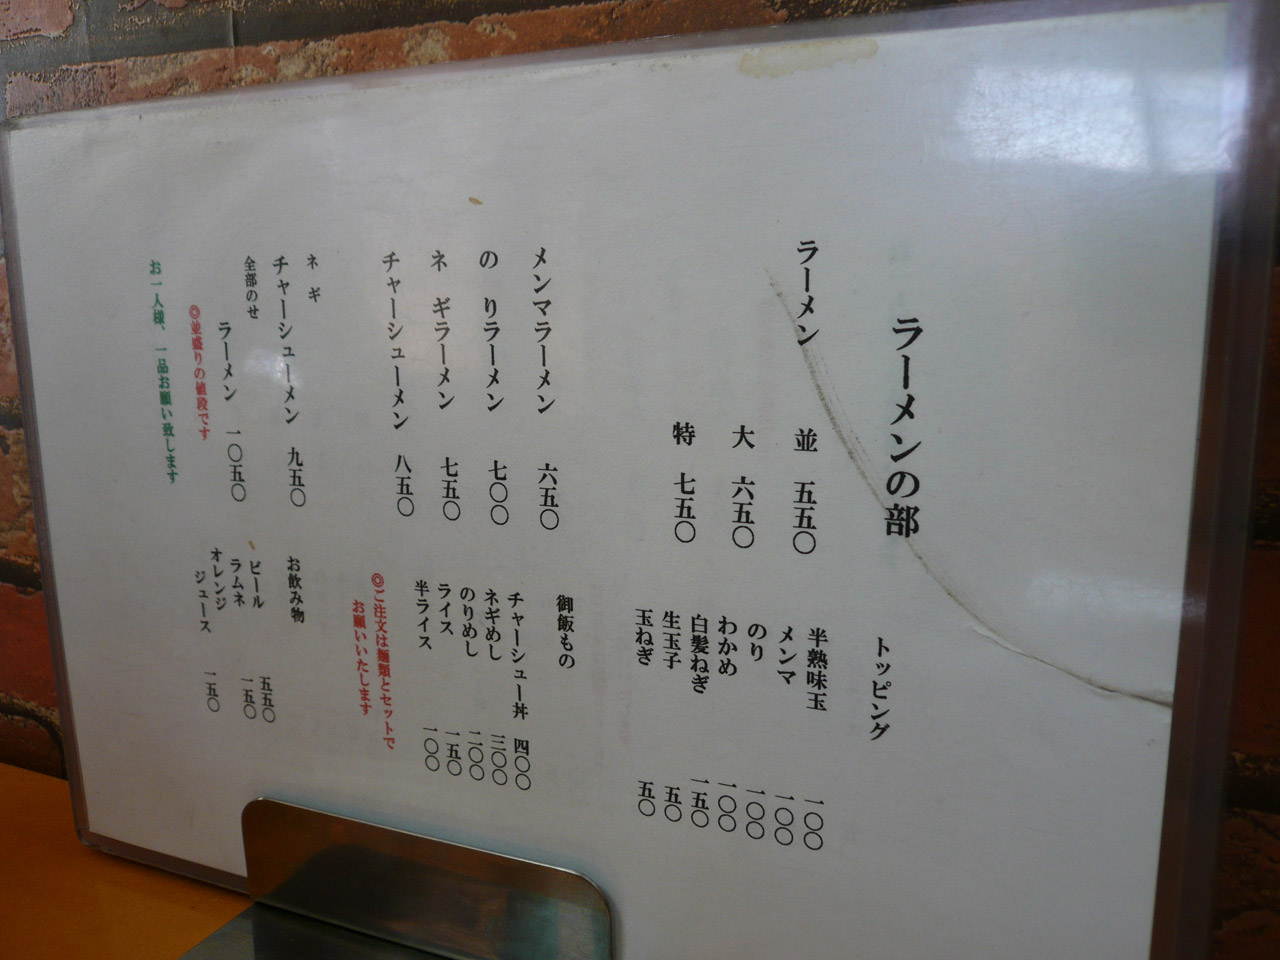 ラーメンの部
ラーメン 並 五五〇
大 六五〇
特 七五〇
メンマラーメン 六五〇
のりラーメン 七〇〇
ネギラーメン 七五〇
チャーシューメン 八五〇
ネギ
チャーシューメン 九五〇
全部のせ
ラーメン 一〇五〇
◎並盛りの値段です
お一人様、一品お願い致します
トッピング
半熟味玉 一〇〇
メンマ 一〇〇
のり 一〇〇
わかめ 一〇〇
白髪ねぎ 一五〇
生玉子 五〇
玉ねぎ 五〇
御飯もの
チャーシュー丼 四〇〇
ネギめし 三〇〇
のりめし 二〇〇
ライス 一五〇
半ライス 一〇〇
◎ご注文は麺類とセットで
お願いいたします
お飲み物
ビール 五五〇
ラムネ 一五〇
オレンジ
ジュース 一五〇